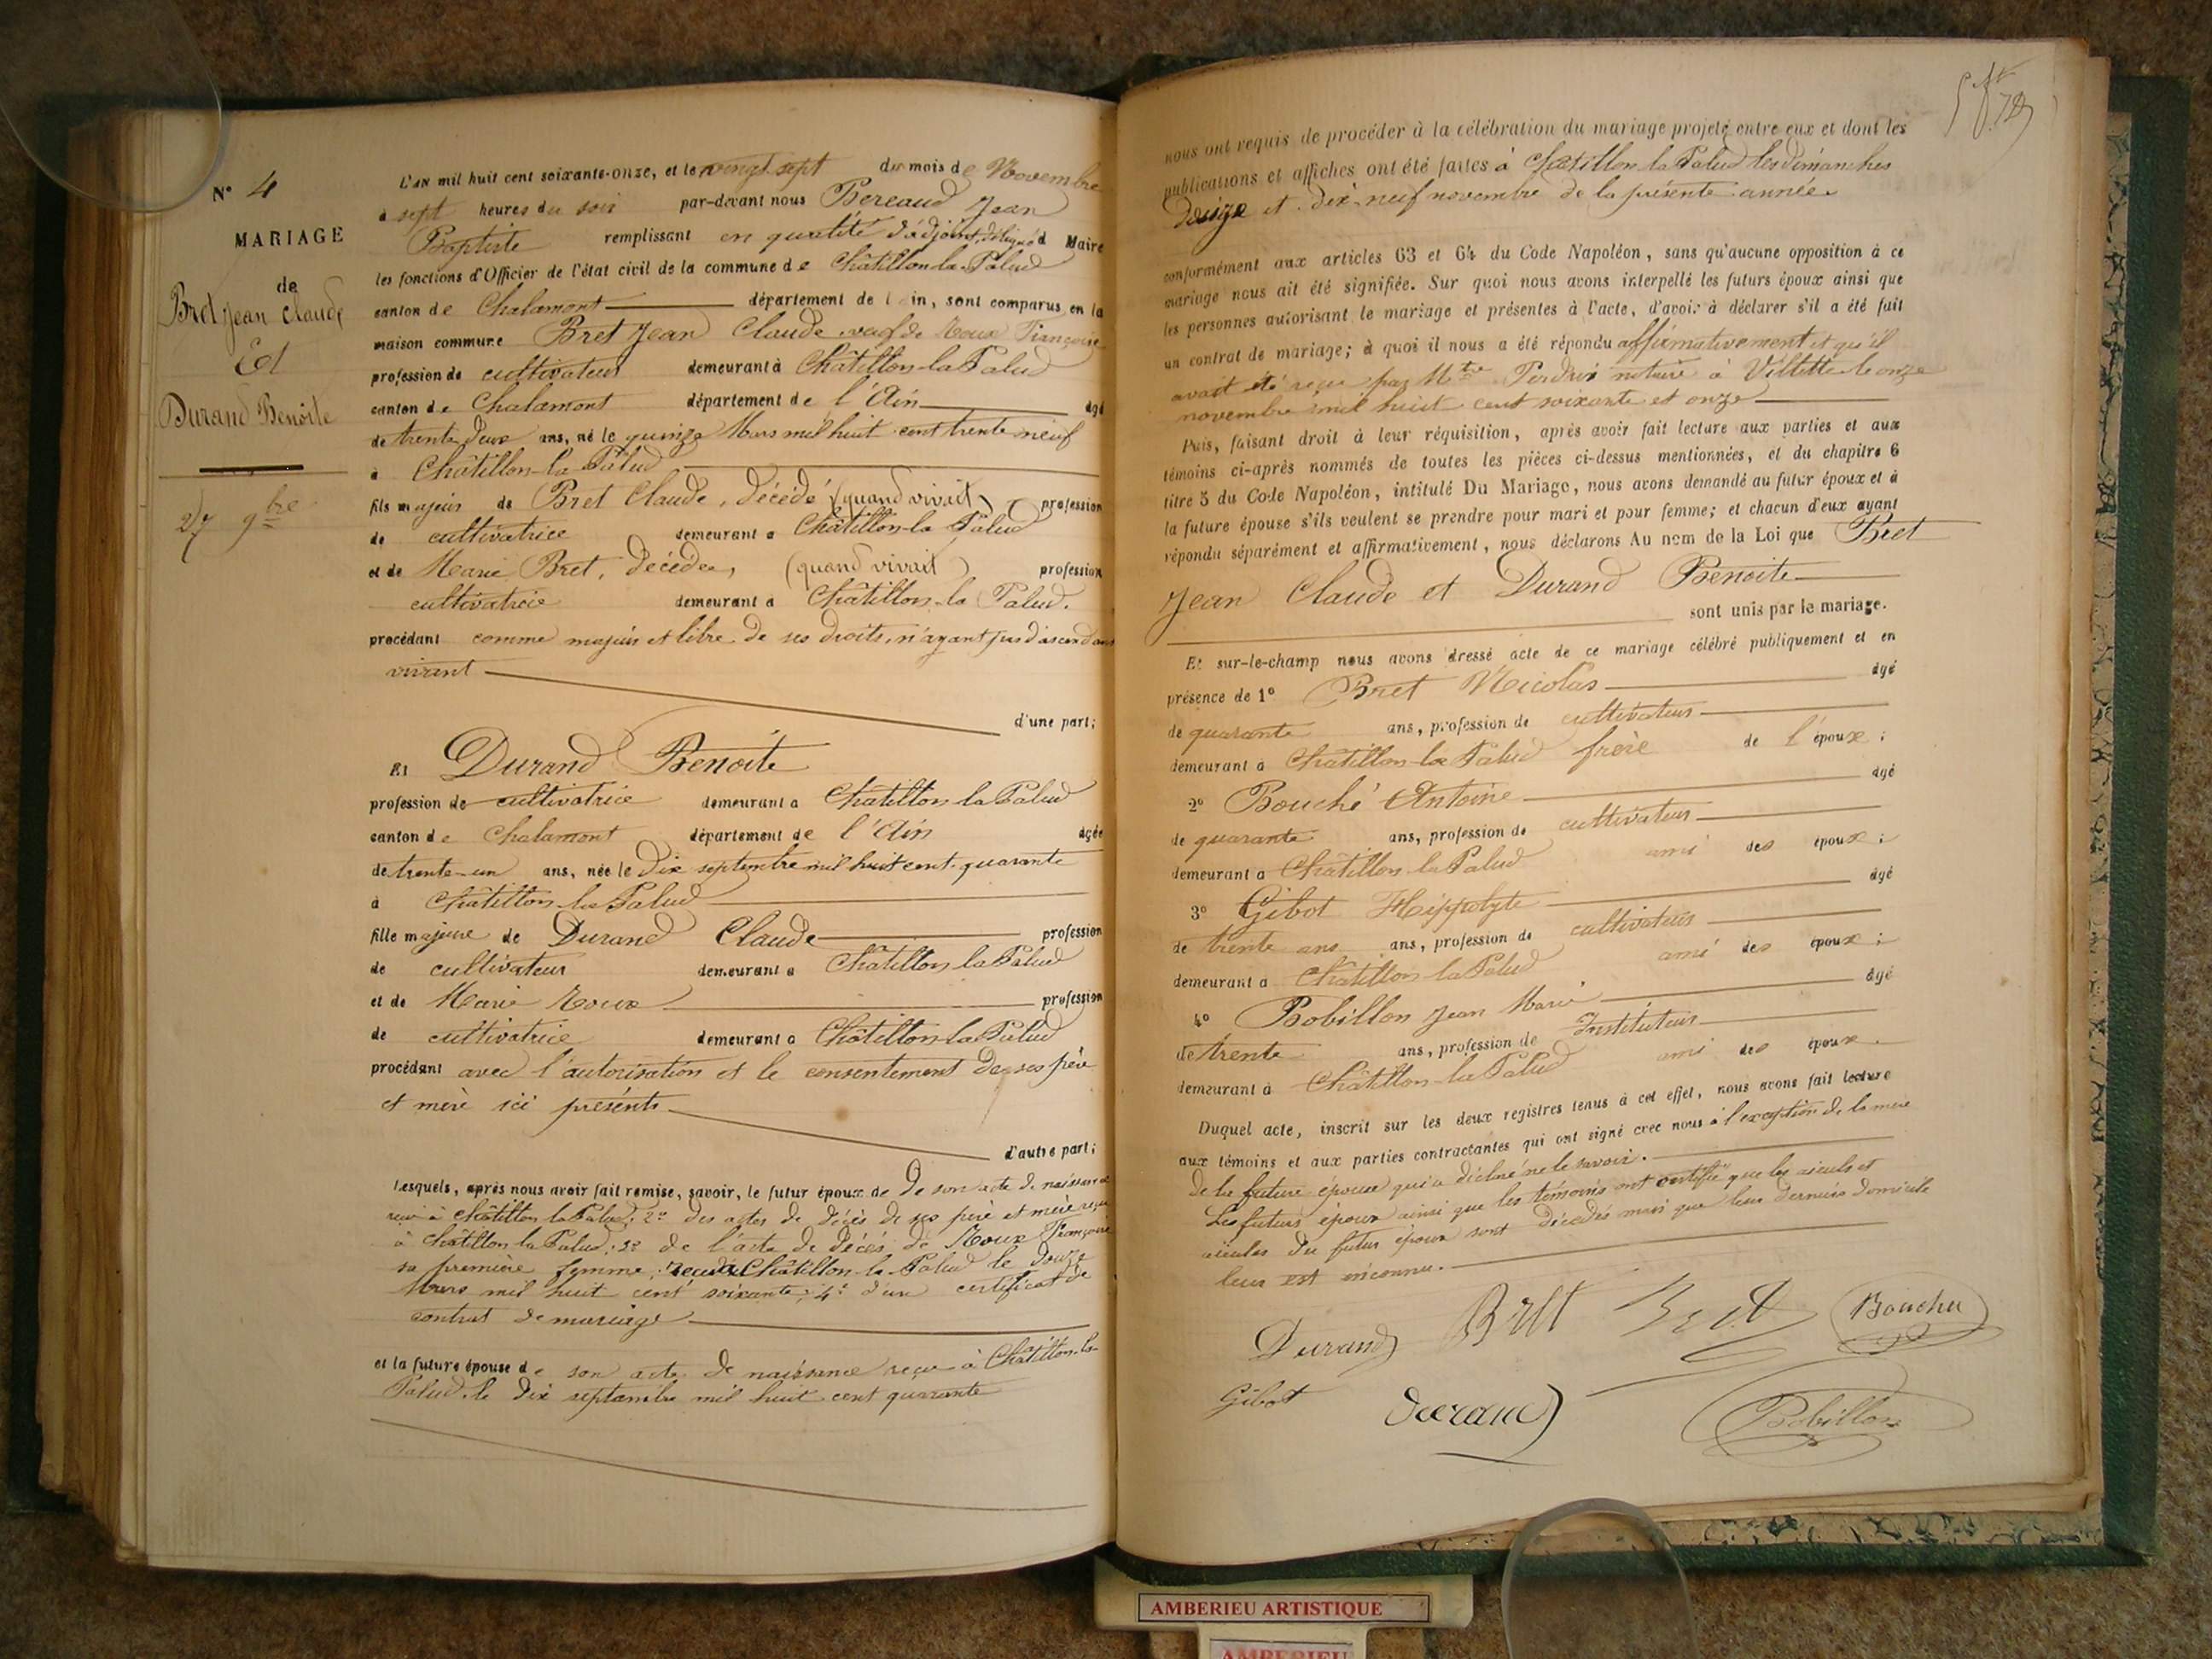 N° 4
MARIAGE
de
Bret Jean Claude
Et
Durand Benoite
27 9bre
L'AN mil huit cent soixante-onze, et le vingt sept du mois de Novembre
à sept heures du soir par-devant nous Bereaud Jean
Baptiste remplissant en qualité d'adjoint, délégué d Maire
les fonctions d'Officier de l'état civil de la commune de Châtillon-la-Palud
canton de Chalamont département de l'Ain, sont comparus en la
maison commune Bret Jean Claude veuf de Roux Françoise
profession de cultivateur demeurant à Châtillon-la-Palud
canton de Chalamont département de l'Ain âgé
de trente deux ans, né le quinze Mars mil huit cent trente neuf
à Châtillon-la-Palud
fils majeur de Bret Claude, décédé (quand vivait) profession
de cultivatrice demeurant à Châtillon-la Palud
et de Marie Bret, décédée, (quand vivait) profession
cultivatrice demeurant à Châtillon-la Palud.
procédant comme majeur et libre de ses droits, n'ayant pas d'ascendans
vivant
d'une part;
Et Durand Benoite
profession de cultivatrice demeurant à Châtillon la Palud
canton de Chalamont département de l'Ain âgée
de trente-un ans, née le dix septembre mil huit cent quarante
à Châtillon-la-Palud
fille majeure de Durand Claude profession
de cultivateur demeurant à Châtillon la Palud
et de Marie Roux profession
de cultivatrice demeurant à Châtillon-la-Palud
procédant avec l'autorisation et le consentement de ses père
et mère ici présents
d'autre part;
Lesquels, après nous avoir fait remise, savoir, le futur époux de de son acte de naissance
reçu à Châtillon la Palud; 2° des actes de décès de ses père et mère reçus
à Châtillon la Palud; 3° de l'acte de décès de Roux Françoise
sa première femme, reçu à Châtillon-la-Palud le douze
Mars mil huit cent soixante; 4° d'un certificat de
contrat de mariage
et la future épouse de son acte de naissance reçu à Châtillon-la-
Palud, le dix septembre mil huit cent quarante
nous ont requis de procéder à la célébration du mariage projeté entre eux et dont les
publications et affiches ont été faites à Châtillon la Palud les dimanches
douze et dix-neuf novembre de la présente année
conformément aux articles 63 et 64 du Code Napoléon, sans qu'aucune opposition à ce
mariage nous ait été signifiée. Sur quoi nous avons interpellé les futurs époux ainsi que
les personnes autorisant le mariage et présentes à l'acte, d'avoir à déclarer s'il a été fait
un contrat de mariage; à quoi il nous a été répondu affirmativement et qu'il
avait été reçu par Mtre notaire à Villette le onze
novembre mil huit cent soixante et onze
Puis, faisant droit à leur réquisition, après avoir fait lecture aux parties et aux
témoins ci-après nommés de toutes les pièces ci-dessus mentionnées, et du chapitre 6
titre 5 du Code Napoléon, intitulé Du Mariage, nous avons demandé au futur époux et à
la future épouse s'ils veulent se prendre pour mari et pour femme; et chacun d'eux ayant
répondu séparément et affirmativement, nous déclarons Au nom de la Loi que Bret
Jean Claude et Durand Benoite
sont unis par le mariage.
Et sur-le-champ nous avons dressé acte de ce mariage célébré publiquement et en
présence de 1° Bret Nicolas âgé
de quarante ans, profession de cultivateur
demeurant à Châtillon-la Palud frère de l'époux;
2° Bouché Antoine âgé
de quarante ans, profession de cultivateur
demeurant à Châtillon la Palud ami des époux;
3° Gibot Hippolyte âgé
de trente ans ans, profession de cultivateur
demeurant à Châtillon la Palud ami des époux;
4° Bobillon Jean Marie âgé
de trente ans, profession de Instituteur
demeurant à Châtillon-la Palud ami des époux.
Duquel acte, inscrit sur les deux registres tenus à cet effet, nous avons fait lecture
aux témoins et aux parties contractantes qui ont signé avec nous à l'exception de la mère
de la future épouse qui a déclaré ne le savoir.
Les futurs époux ainsi que les témoins ont certifié que les aïeuls et
aïeules du futur époux sont décédés mais que leur dernier domicile
leur est inconnu.
Durand Bret Bret Boucher
Gibot Durand Bobillon
AMBERIEU ARTISTIQUE
AMBERIEU